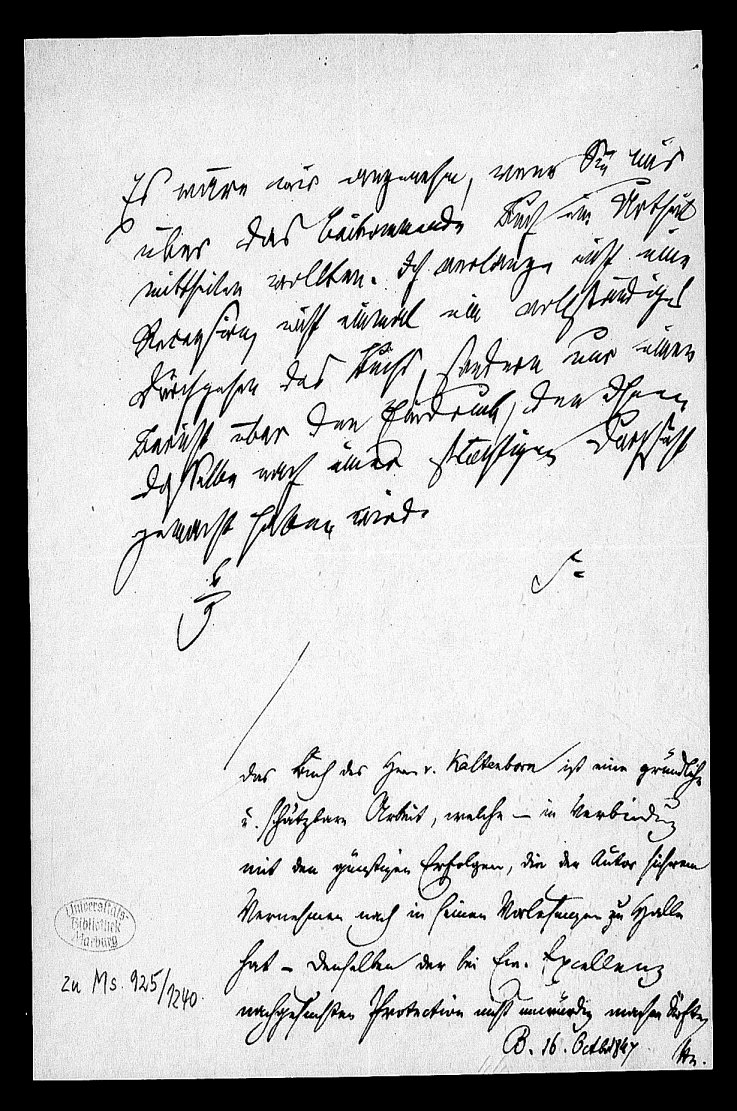 Es wäre mir angenehm, wenn Sie mir
über das beikommende Buch ein Urtheil
mittheilen wollten. Ich verlange nicht eine
Recension, nicht einmal ein vollständiges
Durchgehen des Buchs, sondern nur einen
Bericht über den Eindruck, den Ihnen
dasselbe nach einer flüchtigen Durchsicht
gemacht haben wird.
S
Das Buch des Herrn v. Kaltenborn ist eine gründliche
u. schätzbare Arbeit, welche – in Verbindung
mit den günstigen Erfolgen, die der Autor sicherem
Vernehmen nach in seinen Vorlesungen zu Halle
hat – denselben der bei Ew. Excellenz
nachgesuchten Protection nicht unwürdig machen dürfte.
B. 16. Octbr 1847
Universitäts-
Bibliothek
Marburg
zu Ms. 925/1240.